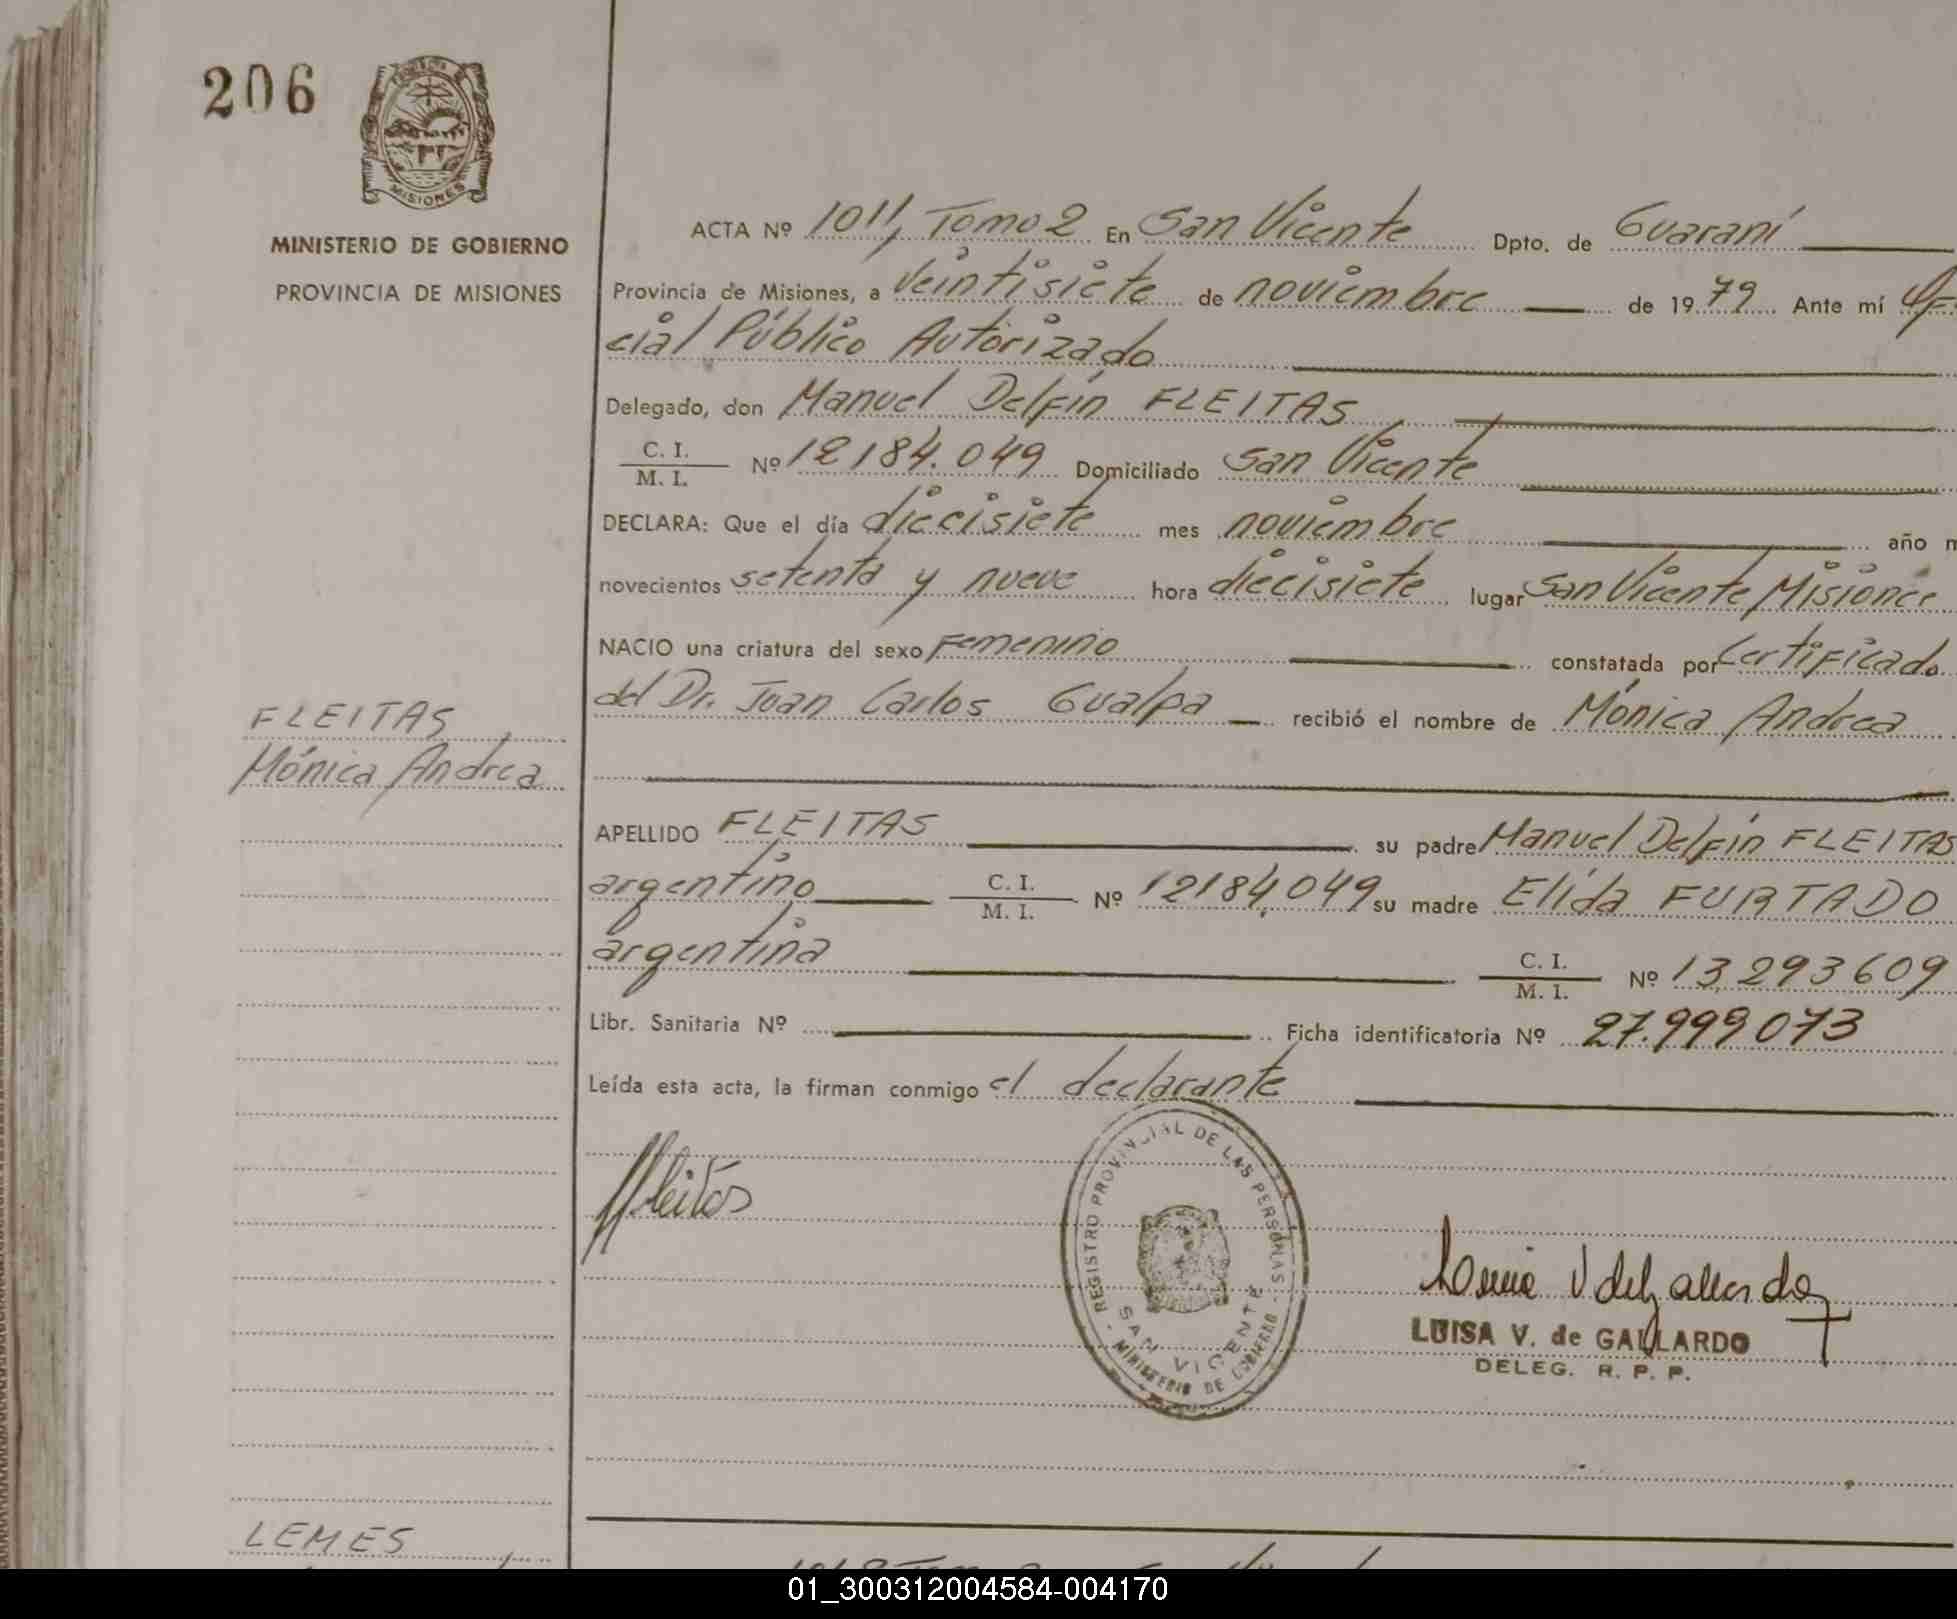 206
MISIONES
MINISTERIO DE GOBIERNO
PROVINCIA DE MISIONES
FLEITAS
Mónica Andrea
ACTA Nº 1011, Tomo 2 En San Vicente Dpto. de Guaraní
Provincia de Misiones, a veintisiete de noviembre de 1979 Ante mí Ofi
cial Público Autorizado
Delegado, don Manuel Delfín FLEITAS
C. I.
M. I. Nº 12184.049 Domiciliado San Vicente
DECLARA: Que el día diecisiete mes noviembre año m
novecientos setenta y nueve hora diecisiete lugar San Vicente Misiones
NACIO una criatura del sexo Femenino constatada por Certificado
del Dr. Juan Carlos Gualpa recibió el nombre de Mónica Andrea
APELLIDO FLEITAS su padre Manuel Delfín FLEITAS
argentino C. I. M. I. Nº 12184,049 su madre Elída FURTADO
argentina C. I. M. I. Nº 13,293609
Libr. Sanitaria Nº Ficha identificatoria Nº 27.999073
Leída esta acta, la firman conmigo el declarante
Fleitas
REGISTRO PROVINCIAL DE LAS PERSONAS
SAN VICENTE
MINISTERIO DE GOBIERNO
Luisa V de Gallardo
LUISA V. de GALLARDO
DELEG. R. P. P.
LEMES
01_300312004584-004170